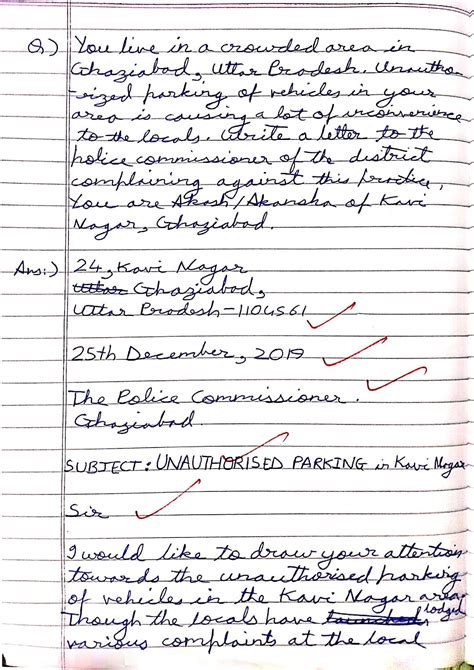 Q.) You live in a crowded area in
Ghaziabad, Uttar Pradesh. Unautho-
-rized parking of vehicles in your
area is causing a lot of inconvenience
to the locals. Write a letter to the
police commissioner of the district
complaining against this practice,
You are Akash/Akansha of Kavi
Nagar, Ghaziabad.
Ans:) 24, Kavi Nagar
Uttar Ghaziabad,
Uttar Pradesh-1104561
25th December, 2019
The Police Commissioner.
Ghaziabad
SUBJECT: UNAUTHORISED PARKING in Kavi Nagar
Sir
I would like to draw your attention
towards the unauthorised parking
of vehicles in the Kavi Nagar area.
Though the locals have lodged
various complaints at the local